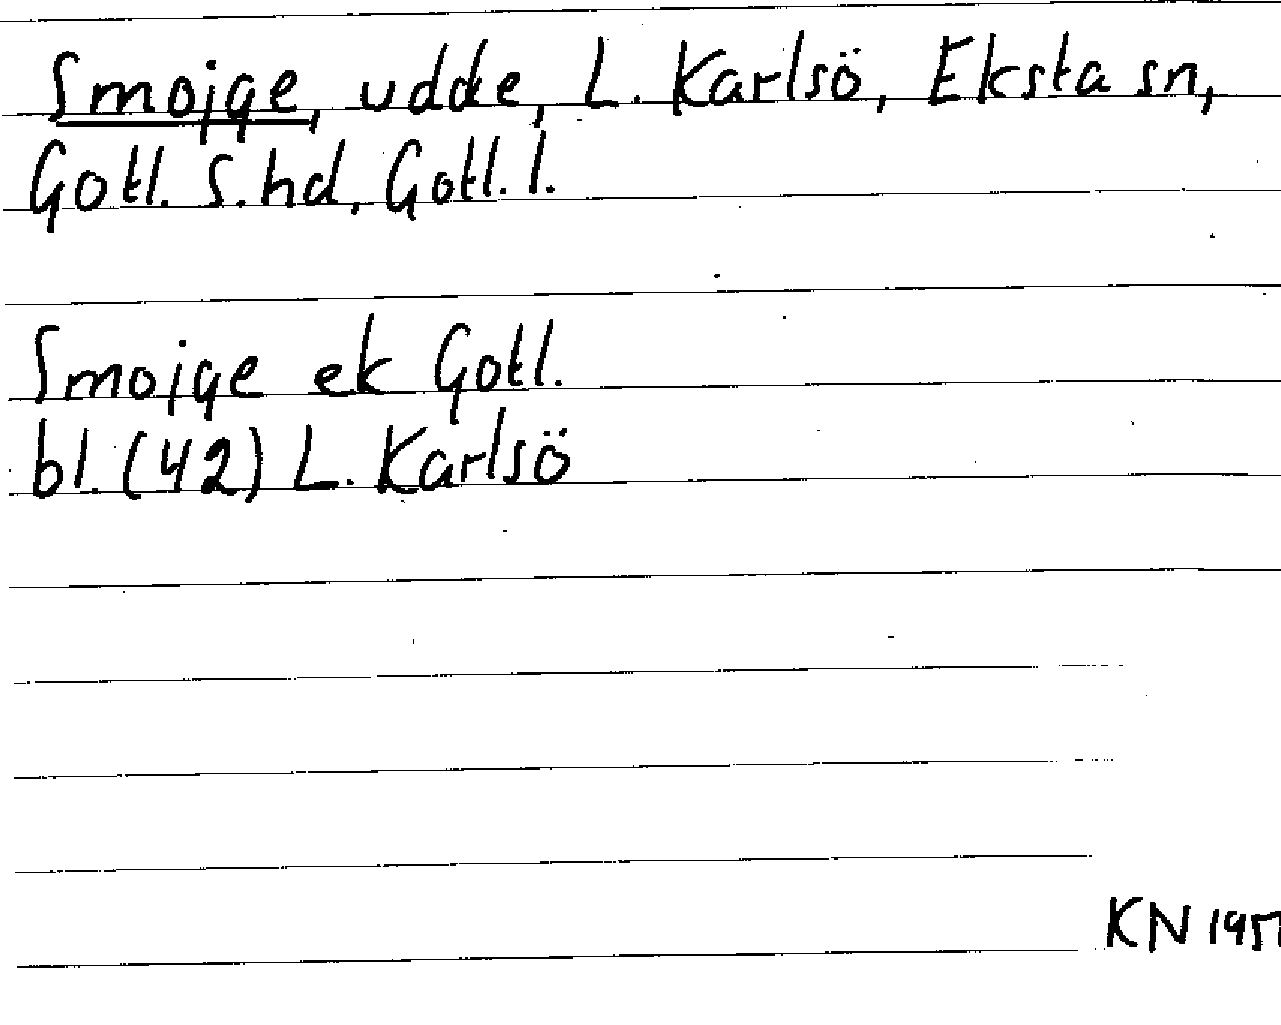 Smojge, udde, L. Karlsö, Eksta sn,
Gotl. S. hd, Gotl. l.
Smojge ek Gotl.
bl. (42) L. Karlsö
KN